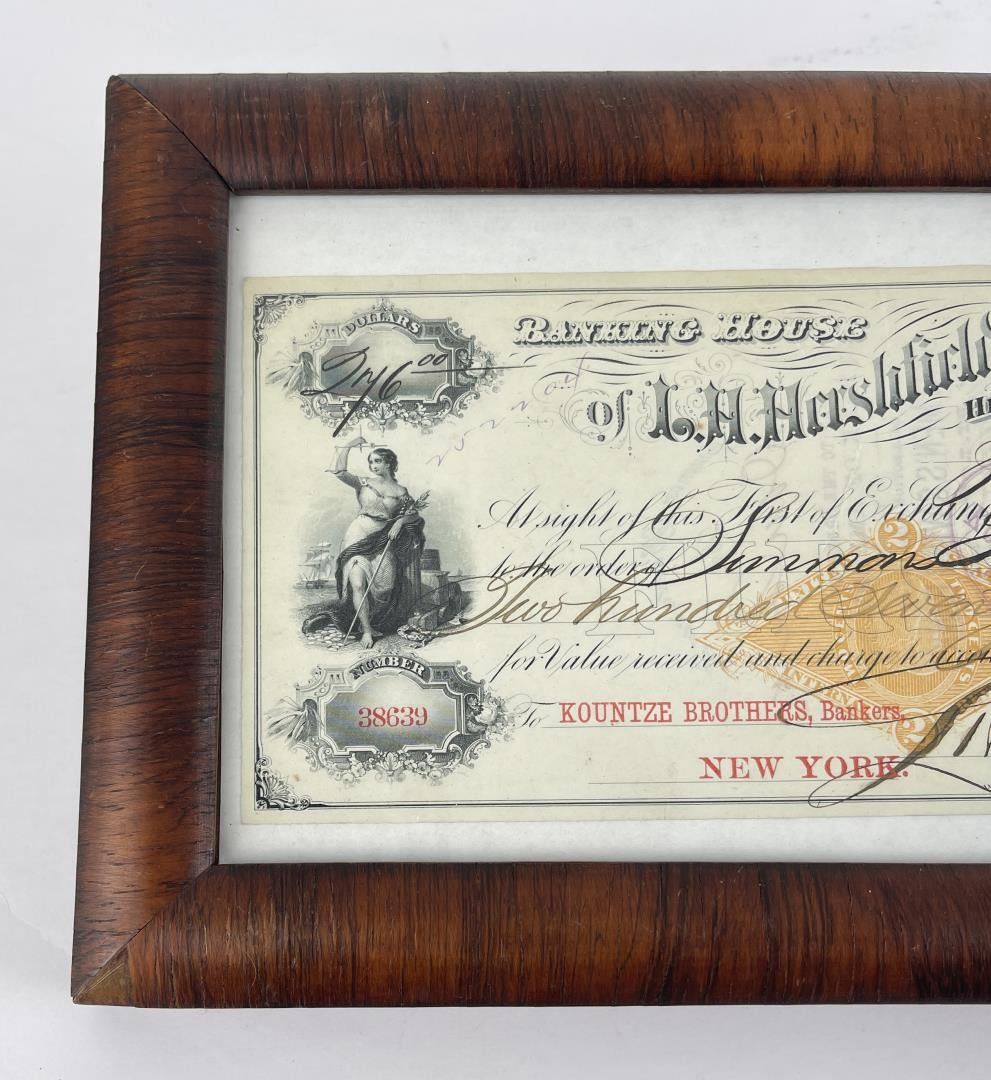 DOLLARS
276 00
BANKING HOUSE
of L.H. Hershfield
At sight of this First of Exchang
to the order of Simmons
Two hundred Seven
for Value received and charge to acco
NUMBER
38639
To KOUNTZE BROTHERS, Bankers,
NEW YORK.
2
UNITED
INTERN
2